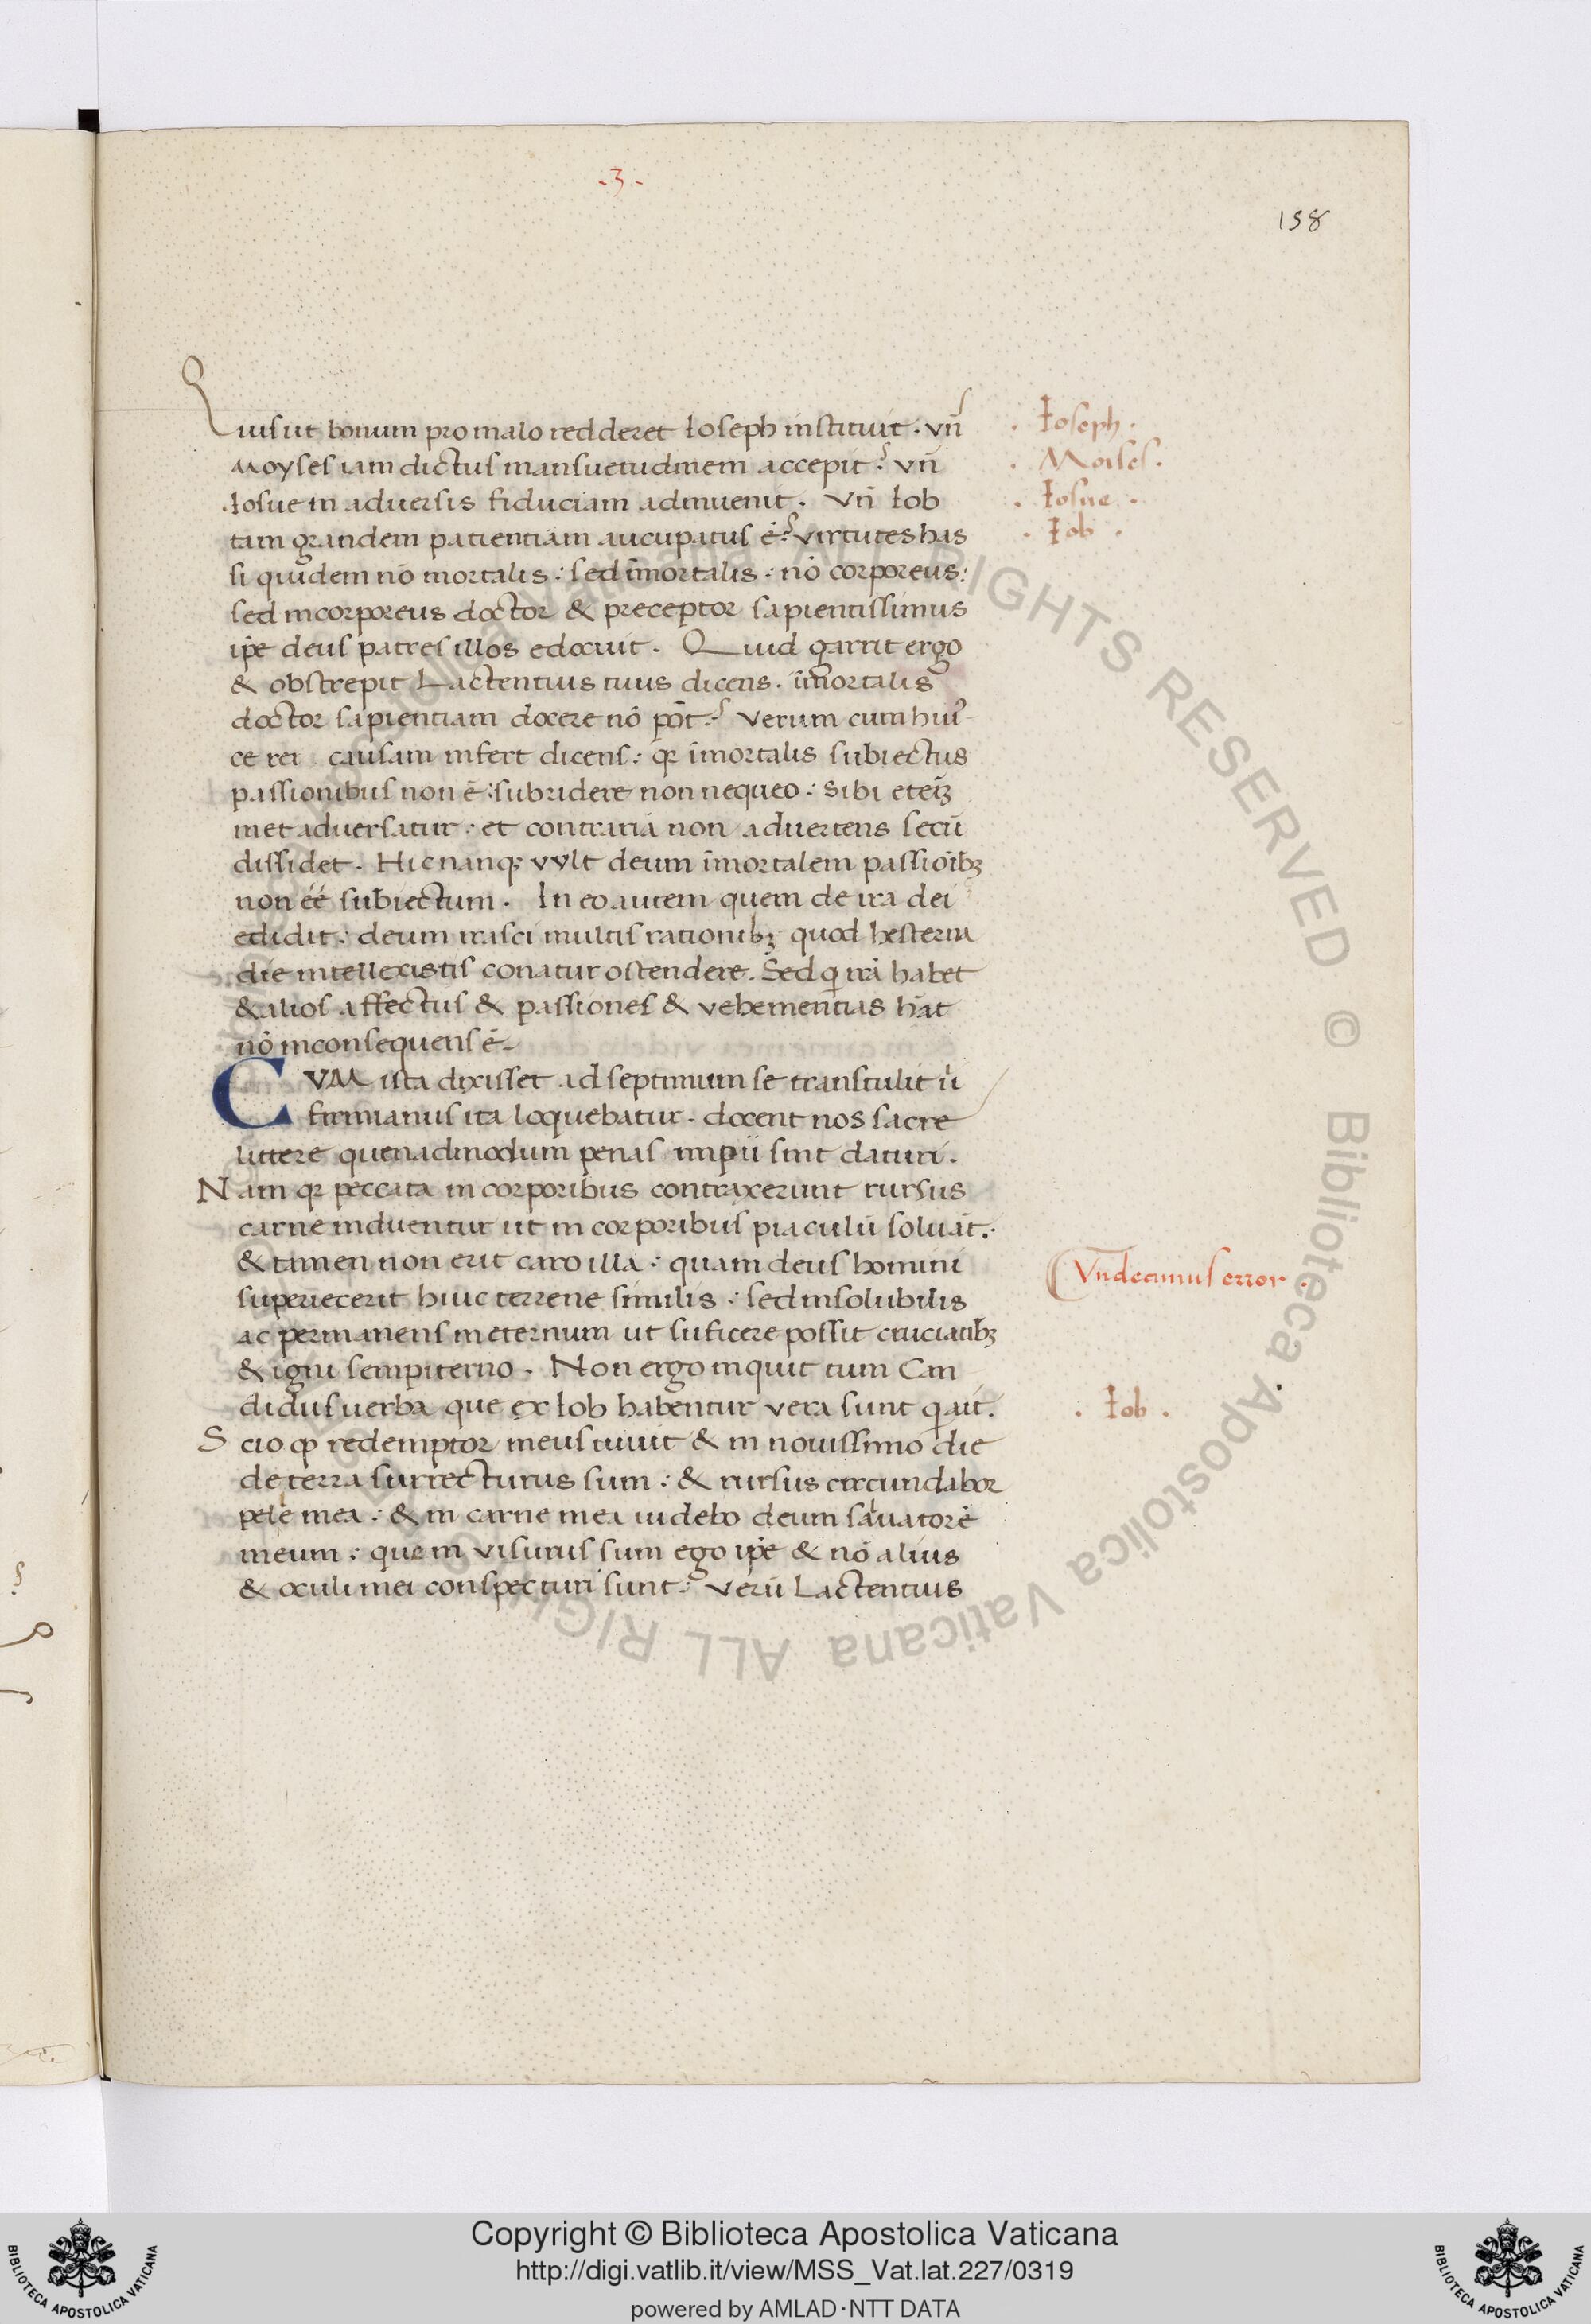 .3.
158
Quis ut bonum pro malo redderet Ioseph instituit. vñ
Moyses iam dictus mansuetudinem accepit? vñ
.Iosue in adversis fiduciam adinvenit. Vñ Iob
tam grandem patientiam aucupatus ē? virtutes has
si quidem nō mortalis: sed īmortalis: nō corporeus:
sed incorporeus doctor & preceptor sapientissimus
ip̄e deus patres illos edocuit. Quid garrit ergo
& obstrepit Lactentius tuus dicens. īmortalis
doctor sapientiam docere nō pōt? Verum cum hui᾽
ce rei causam infert dicens: qr īmortalis subiectus
passionibus non ē: subridere non nequeo: sibi eteīꝫ
met adversatur: et contraria non advertens secū
dissidet. Hic nanqꝫ vvlt deum īmortalem passioībꝫ
non éé subiectum. In eo autem quem de ira dei
edidit: deum irasci multis rationibꝫ quod hesterna
die intellexistis conatur ostendere. Sed q irā habet
& alios affectus & passiones & vehementias hāt
nō inconsequens ē.
CVM ista dixisset ad septimum se transtulit ū
firmianus ita loquebatur. docent nos sacre
littere quenadmodum penas impii sint daturi.
Nam qr peccata in corporibus contraxerunt rursus
carne induentur ut in corporibus piaculū soluāt.
& tamen non erit caro illa: quam deus homini
superiecerit huic terrene similis: sed insolubilis
ac permanens in eternum ut suficere possit cruciatibꝫ
& igni sempiterno. Non ergo inquit tum Can
didus uerba que ex Iob habentur vera sunt q ait.
Scio ꝙ redemptor meus uiuit & in nouissimo die
de terra surrecturus sum: & rursus circundabor
pele mea: & in carne mea uidebo deum saluatorē
meum: quem visurus sum ego ip̄e & nō alius
& oculi mei conspecturi sunt: Verū Lactentius
. Ioseph .
. Moises .
. Iosue .
. Iob .
Vndecimus error .
. Iob .
ALL RIGHTS RESERVED © Biblioteca Apostolica Vaticana ALL RIGHTS
BIBLIOTECA APOSTOLICA VATICANA
Copyright © Biblioteca Apostolica Vaticana
http://digi.vatlib.it/view/MSS_Vat.lat.227/0319
powered by AMLAD·NTT DATA
BIBLIOTECA APOSTOLICA VATICANA